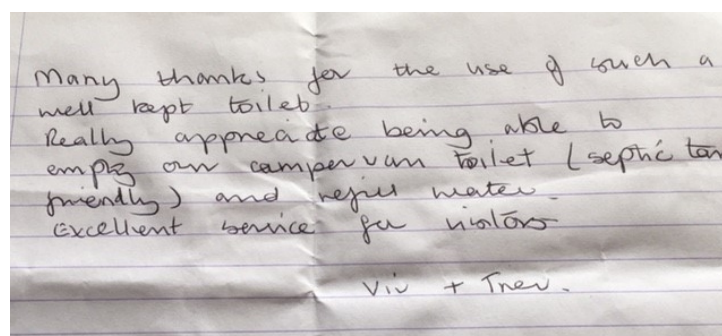 Many thanks for the use of such a
well kept toilet.
Really appreciate being able to
empty our campervan toilet (septic tan
friendly) and refill water.
Excellent service for visitors
Viv + Trev.